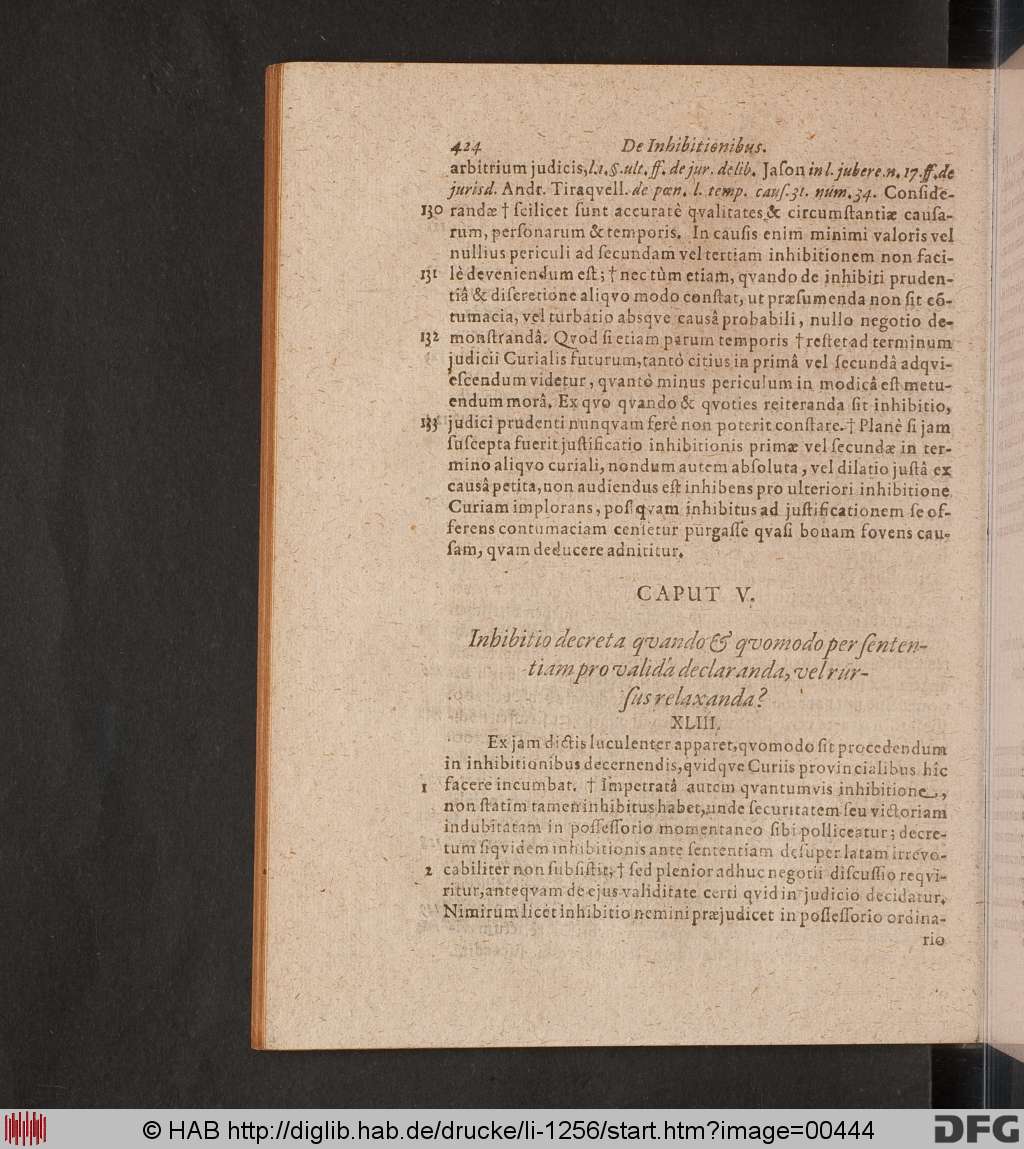 424 De Inhibitionibus.
arbitrium judicis, l.1. §. ult. ff. de jur. delib. Jaſon in l. jubere. n. 17. ff. de
jurisd. Andr. Tiraqvell. de pœn. l. temp. cauſ. 31. num. 34. Conſide-
130 randæ † ſcilicet ſunt accuratè qvalitates & circumſtantiæ cauſa-
rum, perſonarum & temporis. In cauſis enim minimi valoris vel
nullius periculi ad ſecundam vel tertiam inhibitionem non faci-
131 lè deveniendum eſt; † nec tùm etiam, qvando de inhibiti pruden-
tiâ & diſcretione aliqvo modo conſtat, ut præſumenda non ſit cō-
tumacia, vel turbatio absqve causâ probabili, nullo negotio de-
132 monſtrandâ. Qvod ſi etiam parum temporis † reſtet ad terminum
judicii Curialis futurum, tantò citius in primâ vel ſecundâ adqvi-
eſcendum videtur, qvantò minus periculum in modicâ eſt metu-
endum morâ. Ex qvo qvando & qvoties reiteranda ſit inhibitio,
133 judici prudenti nunqvam ferè non poterit conſtare. † Planè ſi jam
ſuſcepta fuerit juſtificatio inhibitionis primæ vel ſecundæ in ter-
mino aliqvo curiali, nondum autem abſoluta, vel dilatio juſtâ ex
causâ petita, non audiendus eſt inhibens pro ulteriori inhibitione
Curiam implorans, poſtqvam inhibitus ad juſtificationem ſe of-
ferens contumaciam cenſetur purgaſſe qvaſi bonam fovens cau-
ſam, qvam deducere adnititur.
CAPUT V.
Inhibitio decreta qvando & qvomodo per ſenten-
tiam pro validâ declaranda, vel rur-
ſus relaxanda?
XLIII.
Ex jam dictis luculenter apparet, qvomodo ſit procedendum
in inhibitionibus decernendis, qvidqve Curiis provincialibus hîc
1 facere incumbat. † Impetratâ autem qvantumvis inhibitione,
non ſtatim tamen inhibitus habet, unde ſecuritatem ſeu victoriam
indubitatam in poſſeſſorio momentaneo ſibi polliceatur; decre-
tum ſiqvidem inhibitionis ante ſententiam deſuper latam irrevo-
2 cabiliter non ſubſiſtit; † ſed plenior adhuc negotii diſcuſſio reqvi-
ritur, anteqvam de ejus validitate certi qvid in judicio decidatur.
Nimirum licèt inhibitio nemini præjudicet in poſſeſſorio ordina-
rio
© HAB http://diglib.hab.de/drucke/li-1256/start.htm?image=00444
DFG